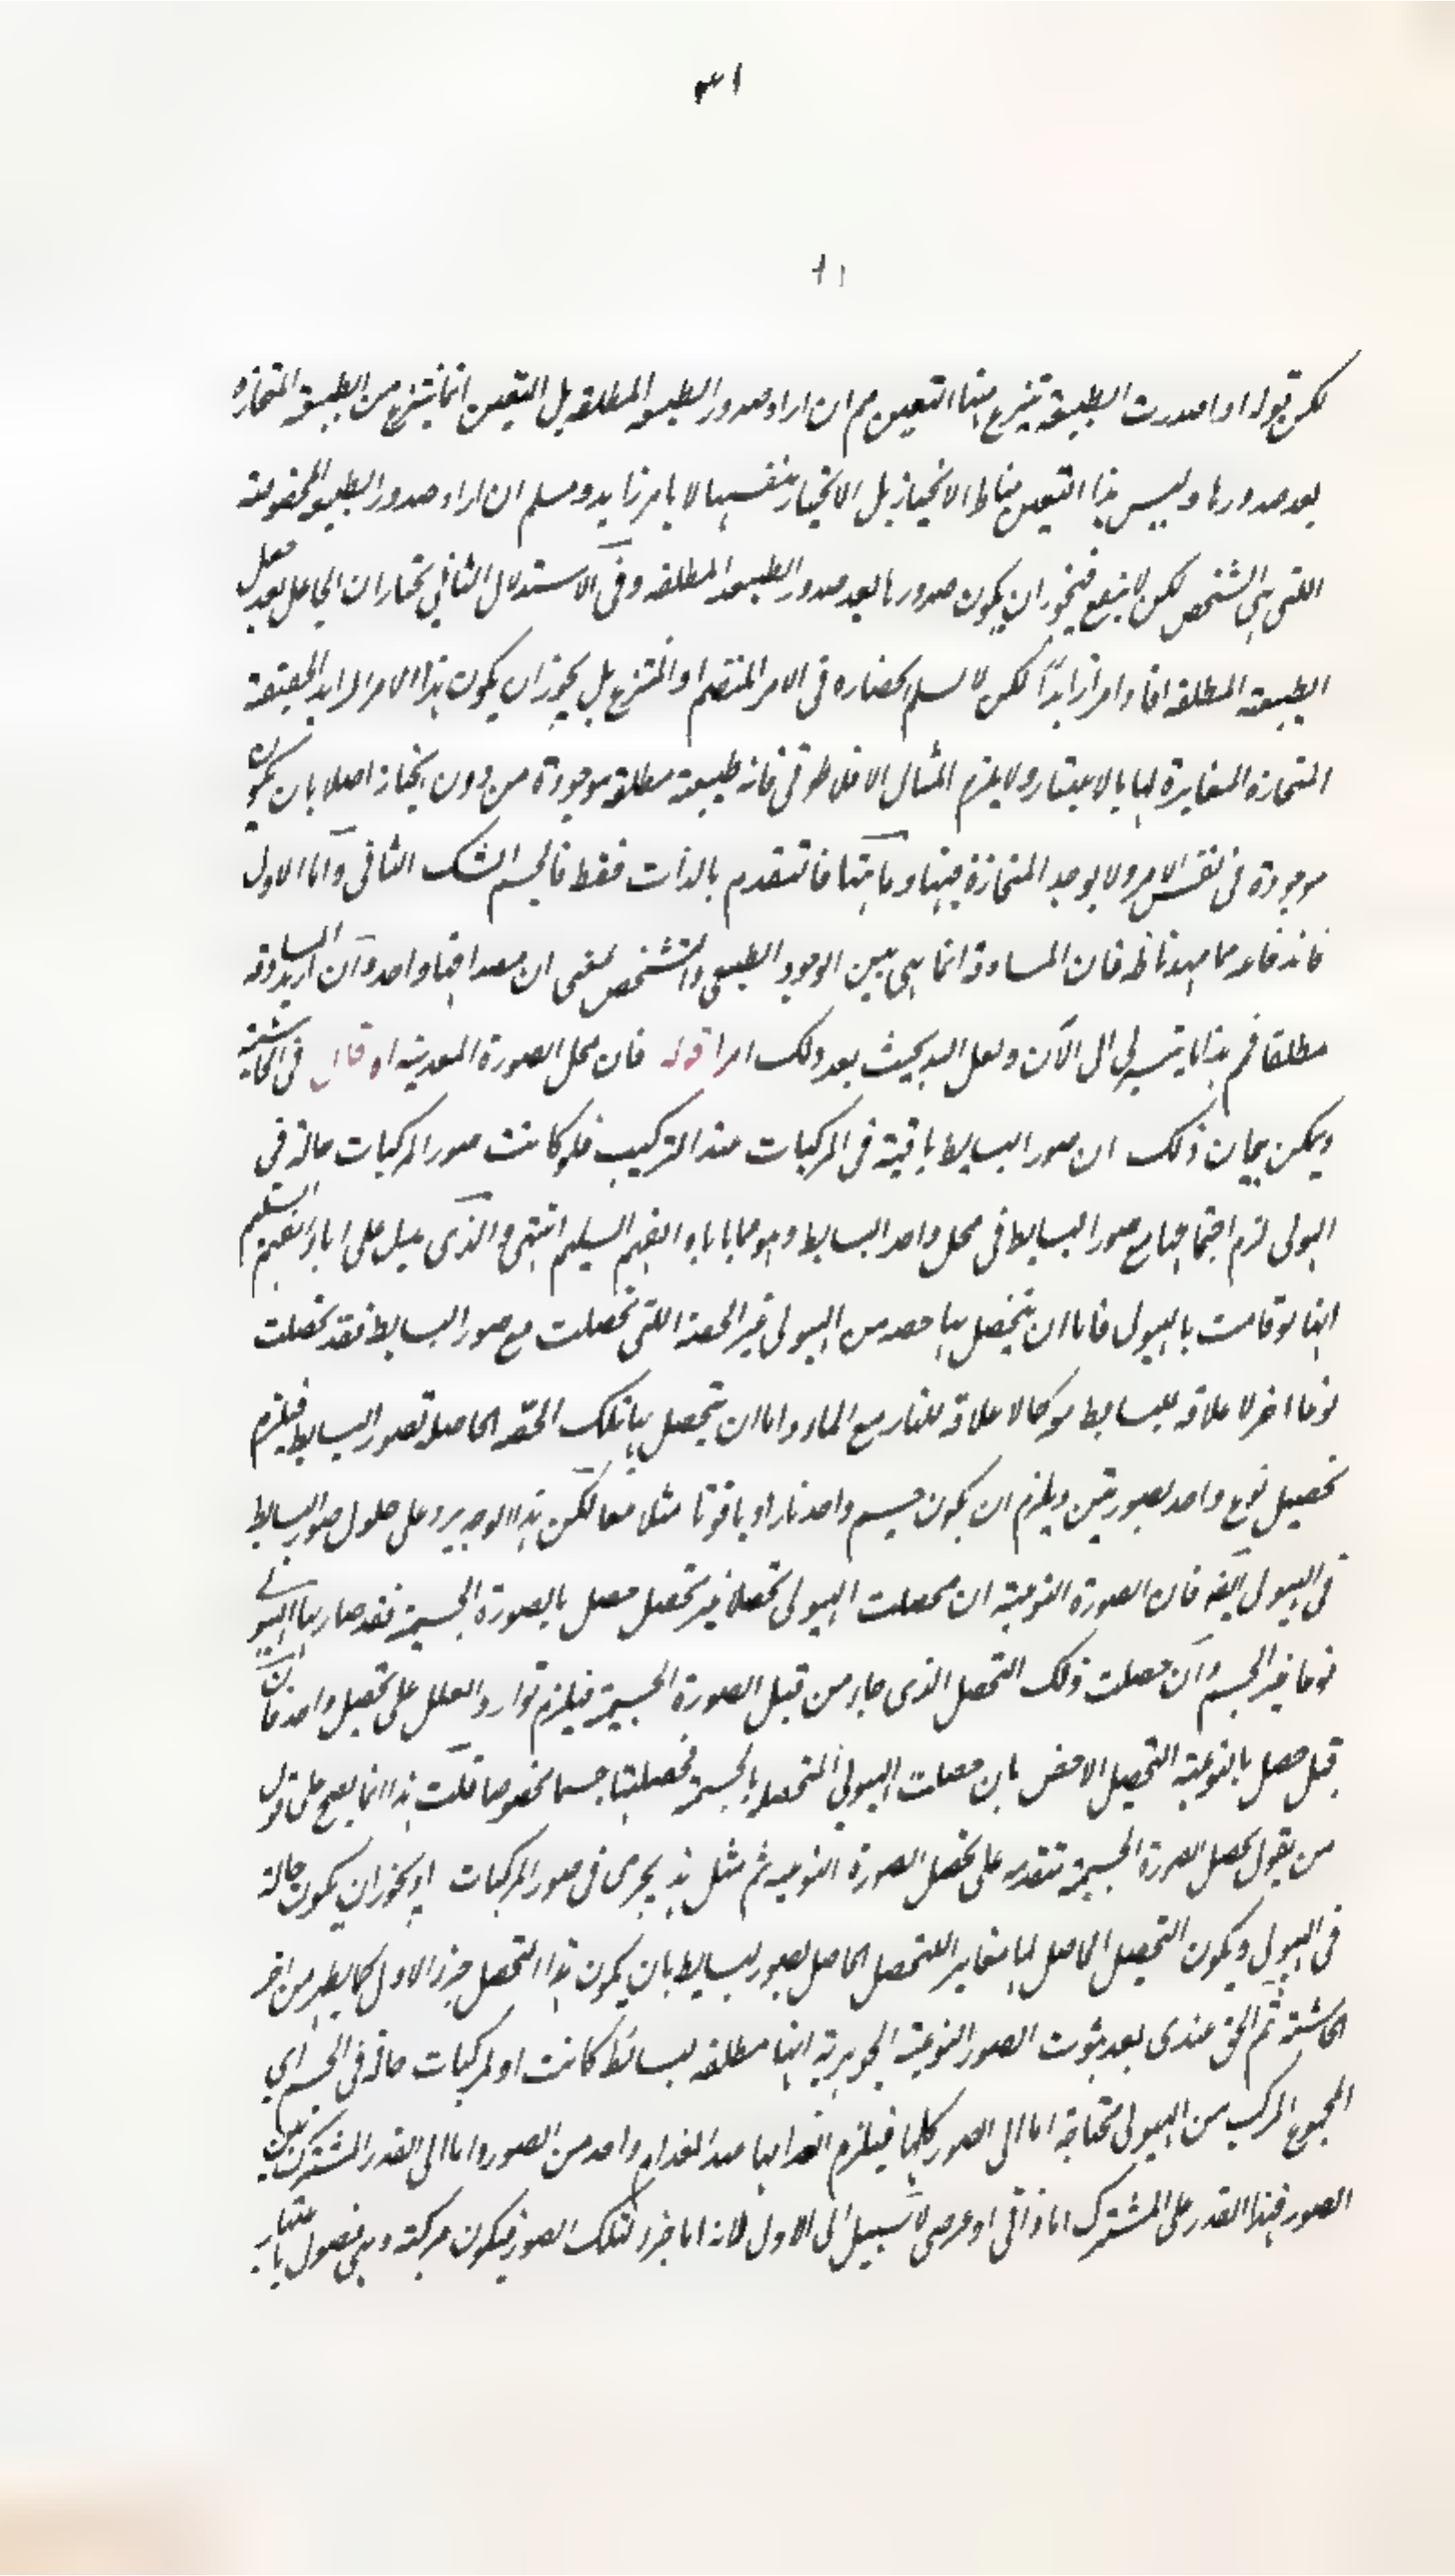 ٣١
١١
لكن قوله اذا صدرت الطبيعة تنتزع منها التعين مم ان اراد صدور الطبيعة المطلقة بل التعين انما ينتزع من الطبيعة المنحازة
بعد صدورها وليس هذا التعين مناط الانحياز بل الانحياز بنفسها لا بامر زايد ومسلم ان اراد صدور الطبيعة المخصوصة
اللتى هى الشخص لكن لا ينفع فيجوز ان يكون صدورها بعد صدور الطبيعة المطلقة وفى الاستدلال الثانى نختار ان الجاعل بعد جعل
الطبيعة المطلقة افاد امرا زايدا لكن لا نسلم انحصاره فى الامر المنضم او المنتزع بل يجوز ان يكون هذا الامر الزايد الحقيقة
المنحازة المغايرة لها بالاعتبار ولا يلزم المثال الافلاطونى فانه طبيعة مطلقة موجودة من دون انحياز اصلا بان يكون
موجودة فى نفس الامر ولا يوجد المنحازة فيها وما هيتها فاتتقدم بالذات فقط فانحسم الشك الثانى واما الاول
فاندفاعه مما مهدنا ظ فان المساوقة انما هى بين الوجود الطبيعى والتشخص بمعنى ان مصداقها واحد وان اريد المساوقة
مطلقا فم هذا ما يتيسر لى الى الآن ولعل الله يحدث بعد ذلك امرا قوله فان محل الصورة المعدنية اه قال فى الحاشية
ويمكن بيان ذلك ان صور البسايط باقية فى المركبات عند التركيب فلو كانت صور المركبات حالة فى
الهيولى لزم اجتماعها مع صور البسايط فى محل واحد البسايط وهو مما يأباه الفهم السليم انتهى والذى يدل على اباء الفهم السليم
انها لو قامت بالهيولى فاما ان يتحصل بها حصة من الهيولى غير الحصة اللتى تحصلت مع صور البسايط فقد تحصلت
نوعا اخر لا علاقة للبسايط معه كما لا علاقة للنار مع الماء واما ان يتحصل بها تلك الحصة الحاصلة بصور البسايط فيلزم
تحصيل نوع واحد بصورتين ويلزم ان يكون جسم واحد نارا وياقوتا مثلا معا لكن هذا الوجه يرد على حلول صور البسايط
فى الهيولى ايضا فان الصورة النوعية ان حصلت الهيولى تحصلا غير تحصل حصل بالصورة الجسمية فقد صار بها الهيولى
نوعا غير الجسم وان حصلت ذلك التحصل الذى جاء من قبل الصورة الجسمية فيلزم توارد العلل على تحصيل واحد فان
قيل حصل بالنوعية التحصيل الاخص بان حصلت الهيولى المتحصلة بالجسمية فحصلتها جسما مخصوصا قلت هذا انما يصح على قول
من يقول بحصل الصورة الجسمية متقدمة على تحصل الصورة النوعية ثم مثل هذا يجرى فى صور المركبات اذ يجوز ان يكون حالة
فى الهيولى ويكون التحصيل الحاصل لها مغاير اللتحصل الحاصل بصور البسايط بان يكون هذا التحصل جزء الاول كما يظهر من اخر
الحاشية ثم الحق عندى بعد ثبوت الصور النوعية الجوهرية انها مطلقة لبسائط كانت او لمركبات حالة فى الجسم اى
المجموع المركب من الهيولى محتاجة اما الى الصور كلها فيلزم انعدامها عند انعدام واحد من الصور واما الى القدر المشترك بين
الصور فهذا القدر على المشترك اما ذاتى او عرضى لا سبيل الى الاول لانه اما جزء لتلك الصور فيكون مركبة وهى فصول باعتبار